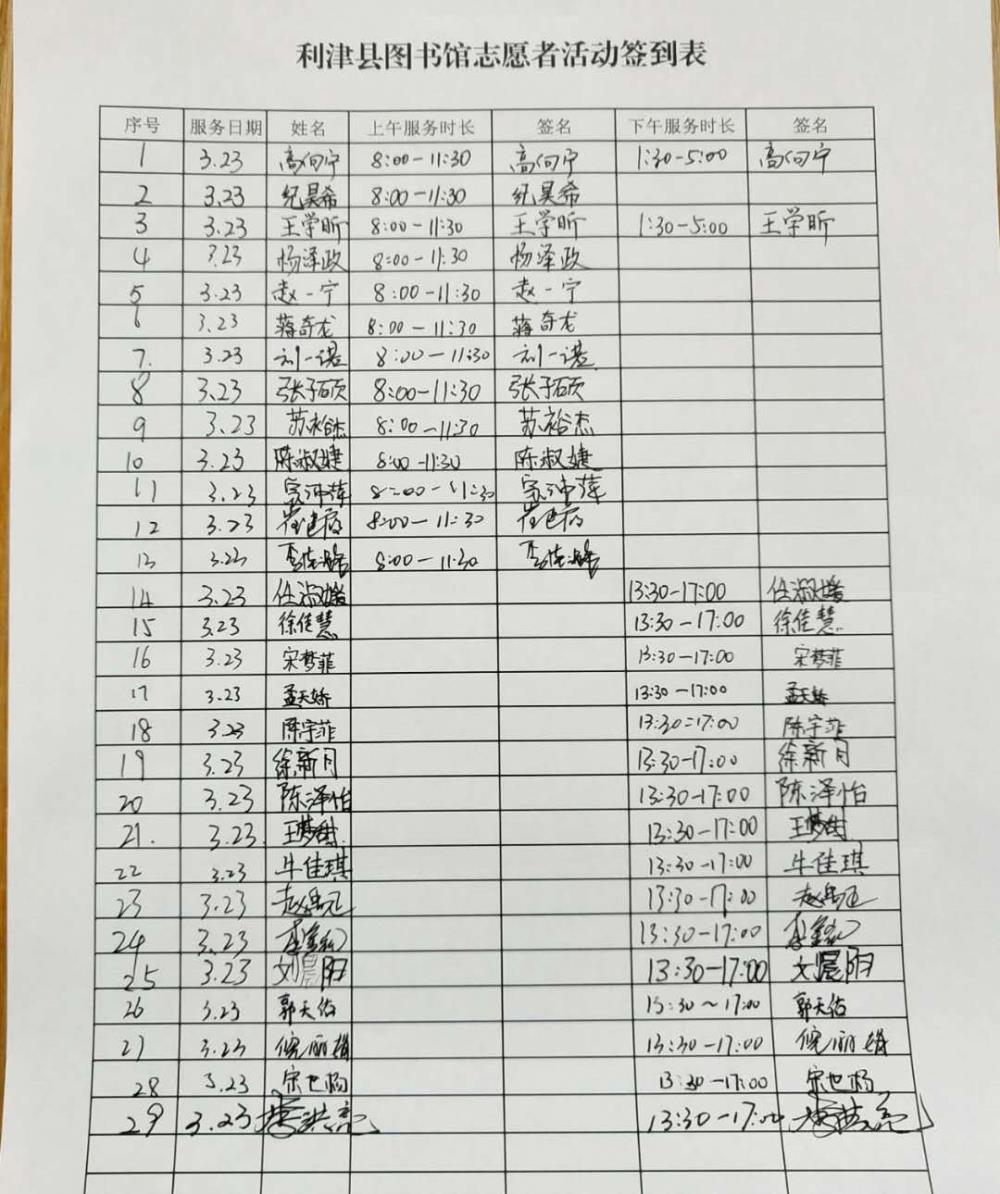 利津县图书馆志愿者活动签到表
序号 服务日期 姓名 上午服务时长 签名 下午服务时长 签名
1 3.23 高向宁 8:00-11:30 高向宁 1:30-5:00 高向宁
2 3.23 纪昊希 8:00-11:30 纪昊希
3 3.23 王学昕 8:00-11:30 王学昕 1:30-5:00 王学昕
4 3.23 杨泽政 8:00-11:30 杨泽政
5 3.23 赵一宁 8:00-11:30 赵一宁
6 3.23 蒋奇龙 8:00-11:30 蒋奇龙
7. 3.23 刘一诺 8:00-11:30 刘一诺
8 3.23 张子硕 8:00-11:30 张子硕
9 3.23 苏裕杰 8:00-11:30 苏裕杰
10 3.23 陈淑婕 8:00-11:30 陈淑婕
11 3.23 8:00-11:30
12 3.23 8:00-11:30
13 3.23 8:00-11:30
14 3.23 13:30-17:00
15 3.23 徐佳慧 13:30-17:00 徐佳慧
16 3.23 宋梦菲 13:30-17:00 宋梦菲
17 3.23 孟天娇 13:30-17:00 孟天娇
18 3.23 陈宇菲 13:30-17:00 陈宇菲
19 3.23 徐新月 13:30-17:00 徐新月
20 3.23 陈泽怡 13:30-17:00 陈泽怡
21. 3.23 13:30-17:00
22 3.23 牛佳琪 13:30-17:00 牛佳琪
23 3.23 13:30-17:00
24 3.23 13:30-17:00
25 3.23 刘晨阳 13:30-17:00 刘晨阳
26 3.23 郭天佑 13:30~17:00 郭天佑
27 3.23 倪丽娟 13:30-17:00 倪丽娟
28 3.23 宋世杨 13:30-17:00 宋世杨
29 3.23 13:30-17:00